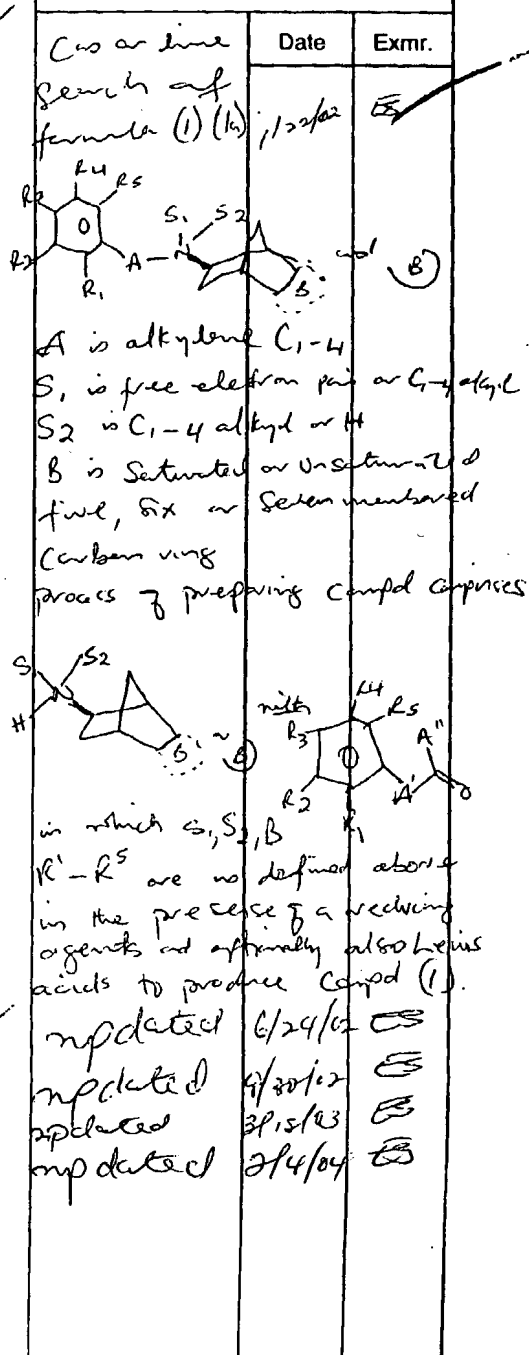 Date Exmr.
Cas on line
Search of
formula (1) (1a) 1/22/02
R4
R3 R5
S1 S2
R2 A N B and B
R1
A is alkylene C1-4
S1 is free electron pair or C1-4 alkyl
S2 is C1-4 alkyl or H
B is Saturated or unsaturated
five, six or seven membered
Carbon ring
process of preparing compd comprises
S1 S2
H B B with R4
R3 R5 A"
R2 R1 A' O
in which S1, S2, B
R1-R5 are as defined above
in the presense of a reducing
agents and optionally also lewis
acids to produce Compd (1).
updated 6/24/02
updated 9/30/02
updated 3/15/03
updated 2/4/04